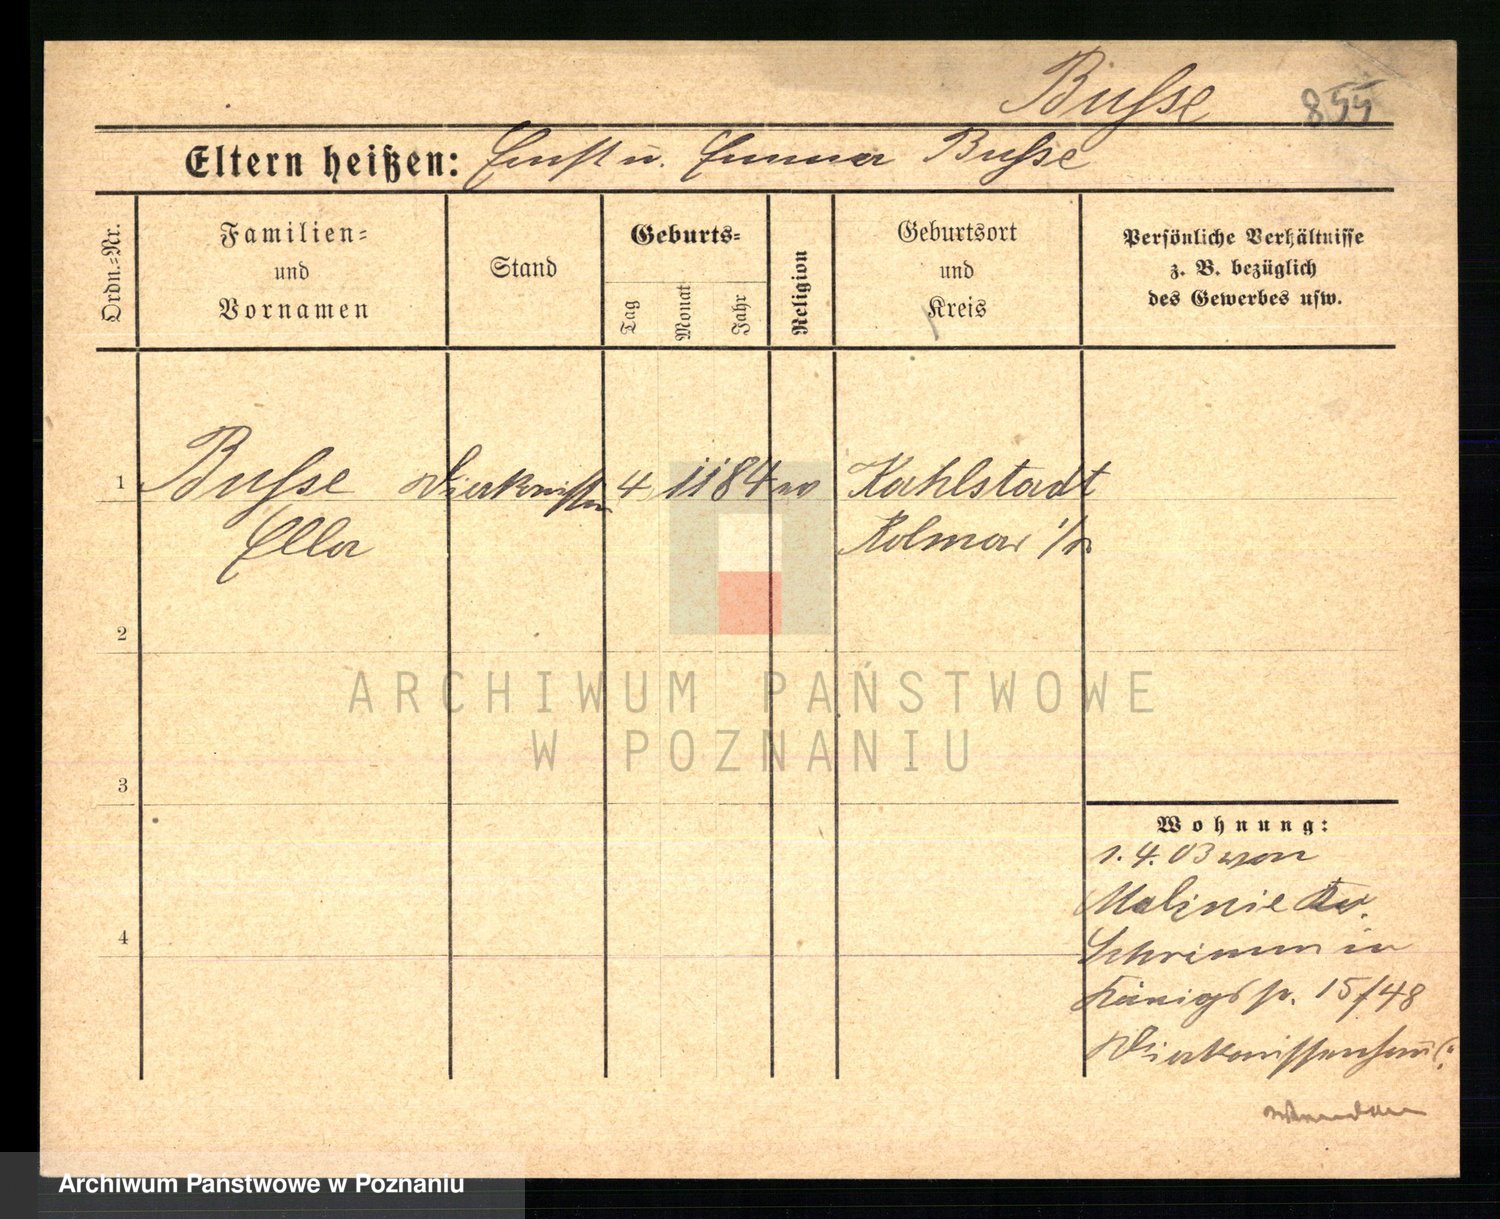 Busse 855
Eltern heißen: Ernst u. Emma Busse
Ordn.-Nr.
Familien-
und
Vornamen
Stand
Geburts-
Tag
Monat
Jahr
Religion
Geburtsort
und
Kreis
Persönliche Verhältnisse
z. B. bezüglich
des Gewerbes usw.
1 Busse Diakonissin 4 11 84 ev Kahlstadt
Ella Kolmar i/P
2
3
4
Wohnung:
1.4.03 von
Malinie Kr.
Schrimm in
Königsstr. 15/48
Diakonissenhaus
wenden
ARCHIWUM PAŃSTWOWE
W POZNANIU
Archiwum Państwowe w Poznaniu